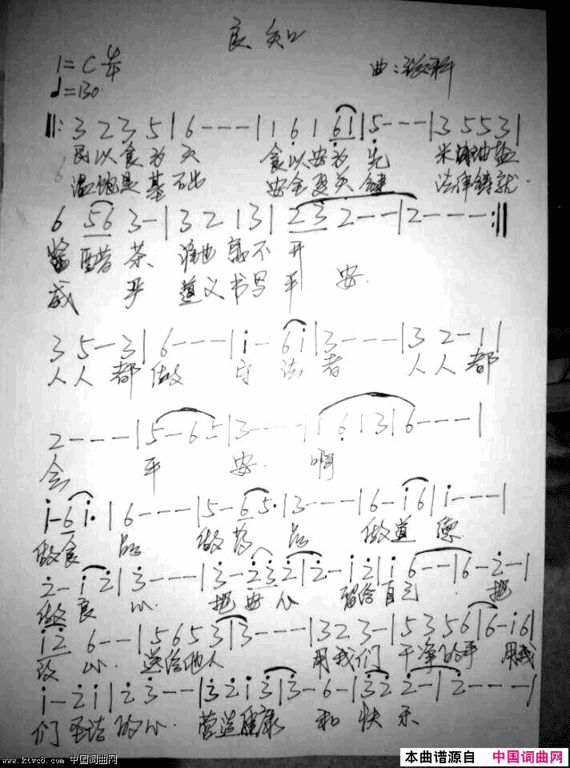 良知
1=C 4/4
♩=130
曲:
‖: 3 2 2 3 5 | 6 - - - | 1 6 1 6 1 | 5 - - - | 3 5 5 3 |
民以食为天 食以安为先 米 油盐
温饱是基石 安全是关键 法律铸就
6 5 6 3 - | 3 2 1 3 | 2 3 2 - - | 2 - - - :‖
酱醋茶 谁也离不开
威严 道义书写平安
3 5 - 3 | 6 - - - | i - 6 i | 3 - - - | 3 2 - 1 |
人人都做守法者 人人都
2 - - - | 5 - 6 5 | 3 - - - | 1 6 1 3 | 6 - - - |
会 平安 啊
i - 6 i · | 6 - - - | 5 - 6 5 · | 3 - - - | 6 - i 6 | i - - - |
做食品 做药品 做道德
2 - i 2 | 3 - - - | 3 - 2 3 2 | 2 - i 2 | i 6 - - | 6 - 2 - |
做良心 把安心 留给自己 把
i 2 6 - - | 5 6 5 3 | 3 - - - | 3 2 3 - | 5 3 5 6 | 6 - i 6 |
心 送给他人 用我们 干净的手 用我
i - 2 i | 2 3 - - | 3 2 i 3 | 3 - 6 - | 3 2 2 - | 2 - - - |
们 的心 营造健康 和快乐
www.ktvc8.com 中国词曲网
本曲谱源自 中国词曲网